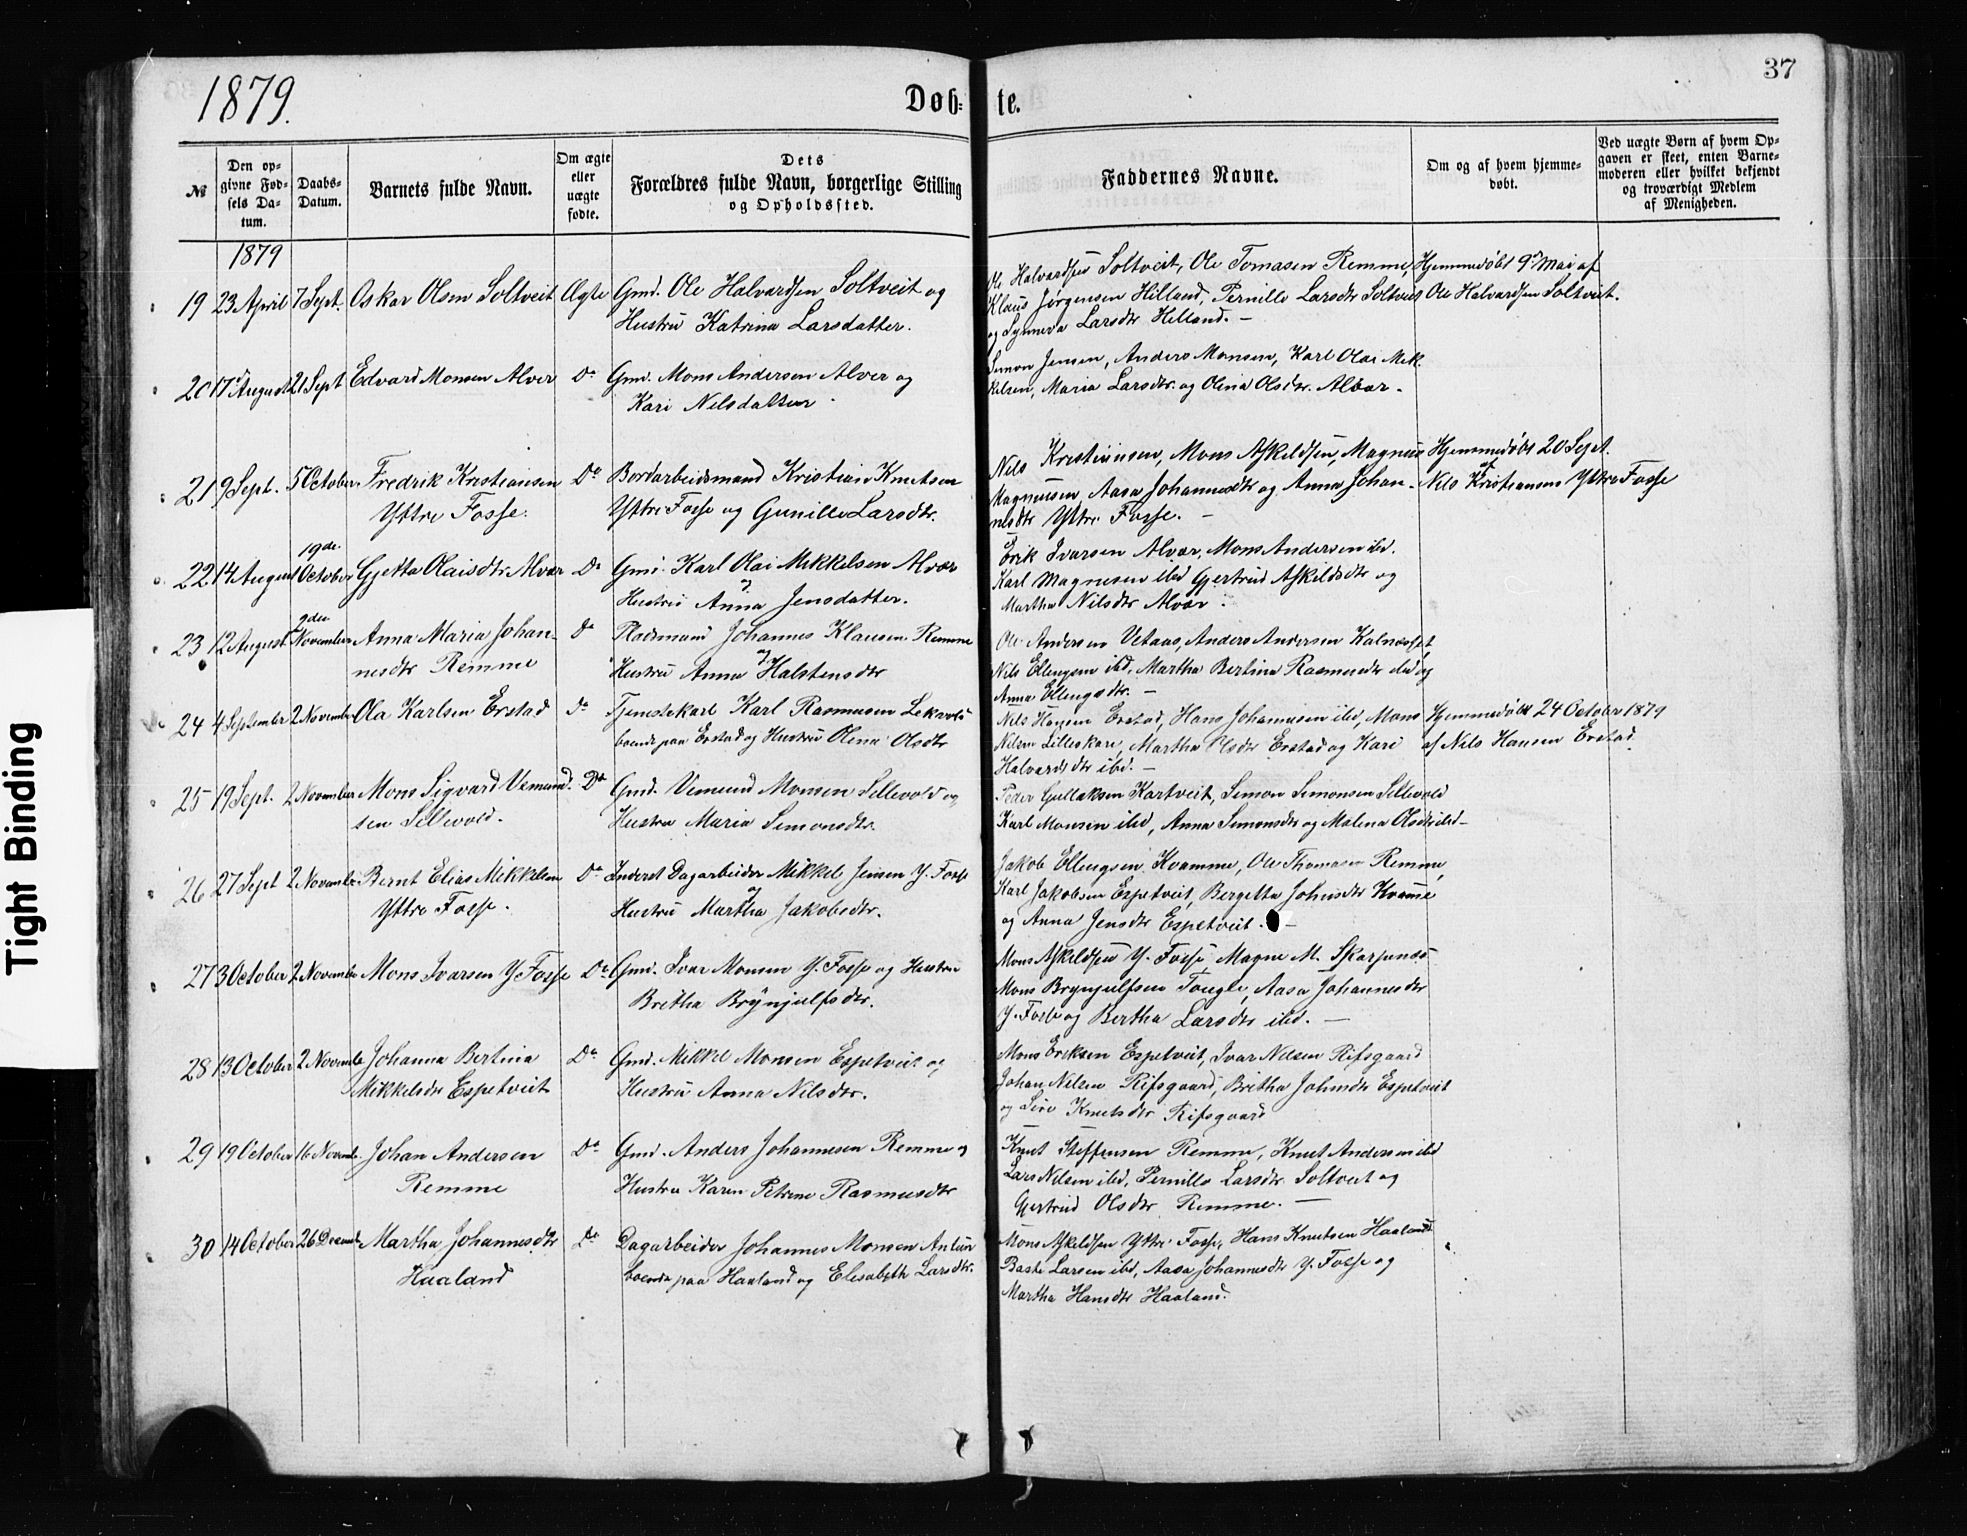 37
1879.
Døb- te.
№
Den op-
givne Fød-
sels Da-
tum.
Daabs-
Datum.
Barnets fulde Navn.
Om ægte
eller
uægte
fødte.
Dets
Forældres fulde Navn, borgerlige Stilling
og Opholdssted.
Faddernes Navne.
Om og af hvem hjemme-
døbt.
Ved uægte Børn af hvem Op-
gaven er skeet, enten Barne-
moderen eller hvilket bekjendt
og troværdigt Medlem
af Menigheden.
1879
19 23 April 7 Sept. Oskar Olsen Soltveit Ægte Gmd. Ole Halvardsen Soltveit og
Hustru Katrina Larsdatter.
Ole Halvardsen Soltveit, Ole Tomasen Remme,
Klaus Jørgensen Hilland, Pernille Larsdtr Soltveit
og Synneva Larsdtr Helland. –
Hjemmedøbt 9 Mai af
Ole Halvardsen Soltveit.
20 17 August 21 Sept Edvard Monsen Alver Do Gmd. Mons Andersen Alver og
Kari Nilsdatter
Simon Jensen, Anders Monsen, Karl Olai Mik
kelsen, Maria Larsdtr. og Olina Olsdtr. Alvær.
21 9 Sept. 5 October Fredrik Kristiansen
Yttre Fosse.
Do Bordarbeidsmand Kristian Knutsen
Yttre Fosse og Gunille Larsdtr.
Nils Kristiansen, Mons Askildsen, Magnus
Magnusen, Aasa Johannesdtr og Anna Johan-
nesdtr Yttre Fosse. –
Hjemmedøbt 20 Sept.
af
Nils Kristiansen Yttre Fosse
22 14 August 19de. October Gjetta Olaisdtr Alvær Do Gmd. Karl Olai Mikkelsen Alvær
og
Hustru Anna Jensdatter.
Erik Ivarsen Alvær, Mons Andersen ibd.
Karl Magnesen ibd Gjertrud Askildsdtr og
Martha Nilsdtr Alvær.
23 12 August 2den November Anna Maria Johan-
nesdtr Remme
Do Pladsmand Johannes Klausen Remme
og
Hustru Anna Halstensdtr
Ole Andersen Vetaas, Anders Andersen Kalnesset,
Nils Ellingsen ibd, Martha Bertina Rasmusdtr ibd og
Anna Ellingsdtr. –
24 4 September 2 November Ola Karlsen Erstad Do Tjenestekarl Karl Rasmusen
boende paa Erstad og Hustru Olina Olsdtr
Nils Hansen Erstad, Hans Johannesen ibd, Mons
Nilsen Lilleskare, Martha Olsdtr Erstad og Kari
Halvardsdtr ibd. –
Hjemmedøbt 24 October 1879
af Nils Hansen Erstad.
25 19 Sept. 2 November Mons Sigvard Vemund-
sen Sellevold.
Do Gmd. Vemund Monsen Sellevold og
Hustru Maria Simonsdtr.
Peder Gullaksen Kartveit, Simon Simonsen Sellevold
Karl Monsen ibd, Anna Simonsdtr og Malena Olsdtr ibd –
26 27 Sept 2 November Bernt Elias Mikkelsen
Yttre Fosse.
Do Inderst Dagarbeider Mikkel Jensen Y. Fosse
og
Hustru Martha Jakobsdtr.
Jakob Ellingsen Kvamme, Ole Thomasen Remme,
Karl Jakobsen Espetveit, Bergetta Johnsdtr Kvamme
og Anna Jensdtr Espetveit. –
27 3 October 2 November Mons Ivarsen Y. Fosse Do Gmd. Ivar Monsen Y. Fosse og Hustru
Bretha Brynjulfsdtr.
Mons Askildsen Y. Fosse Magne M. Skarpenes
Mons Brynjulfsen Fougle, Aasa Johannesdtr
Y. Fosse og Bertha Larsdtr ibd. –
28 13 October 2 November Johanna Bertina
Mikkelsdtr Espetveit
Do Gmd. Mikkel Monsen Espetveit og
Hustru Anna Nilsdtr.
Mons Eriksen Espetveit, Ivar Nilsen Rifsgaard
Johan Nilsen Rifsgaard, Bretha Johnsdtr Espetveit
og Sire Knutsdtr Rifsgaard
29 19 October 16 Novemb. Johan Andersen
Remme
Do Gmd. Anders Johannesen Remme og
Hustru Karen Petrine Rasmusdtr
Knut Steffensen Remme, Knut Andersen ibd
Lars Nilsen ibd, Pernille Larsdtr Soltveit og
Gjertrud Olsdtr Remme. –
30 14 October 26 Decemb. Martha Johannesdtr
Haaland
Do Dagarbeider Johannes Monsen
boende paa Haaland og Elisabeth Larsdtr.
Mons Askildsen Yttre Fosse, Hans Knutsen Haaland
Baste Larsen ibd, Aasa Johannesdtr Y. Fosse og
Martha Hansdtr Haaland.
Tight Binding